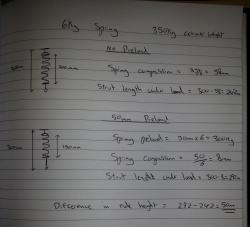 6Kg Spring 350Kg corner weight
No Preload
200mm
Spring compression = 350/6 = 58mm
Strut length under load = 300-58=242mm
50mm Preload
300mm
150mm
Spring preload = 50mm x 6 = 300Kg
Spring compression = 50/6 = 8mm
Strut length under load = 300-8=292m
Difference in ride height = 292-242=50mm